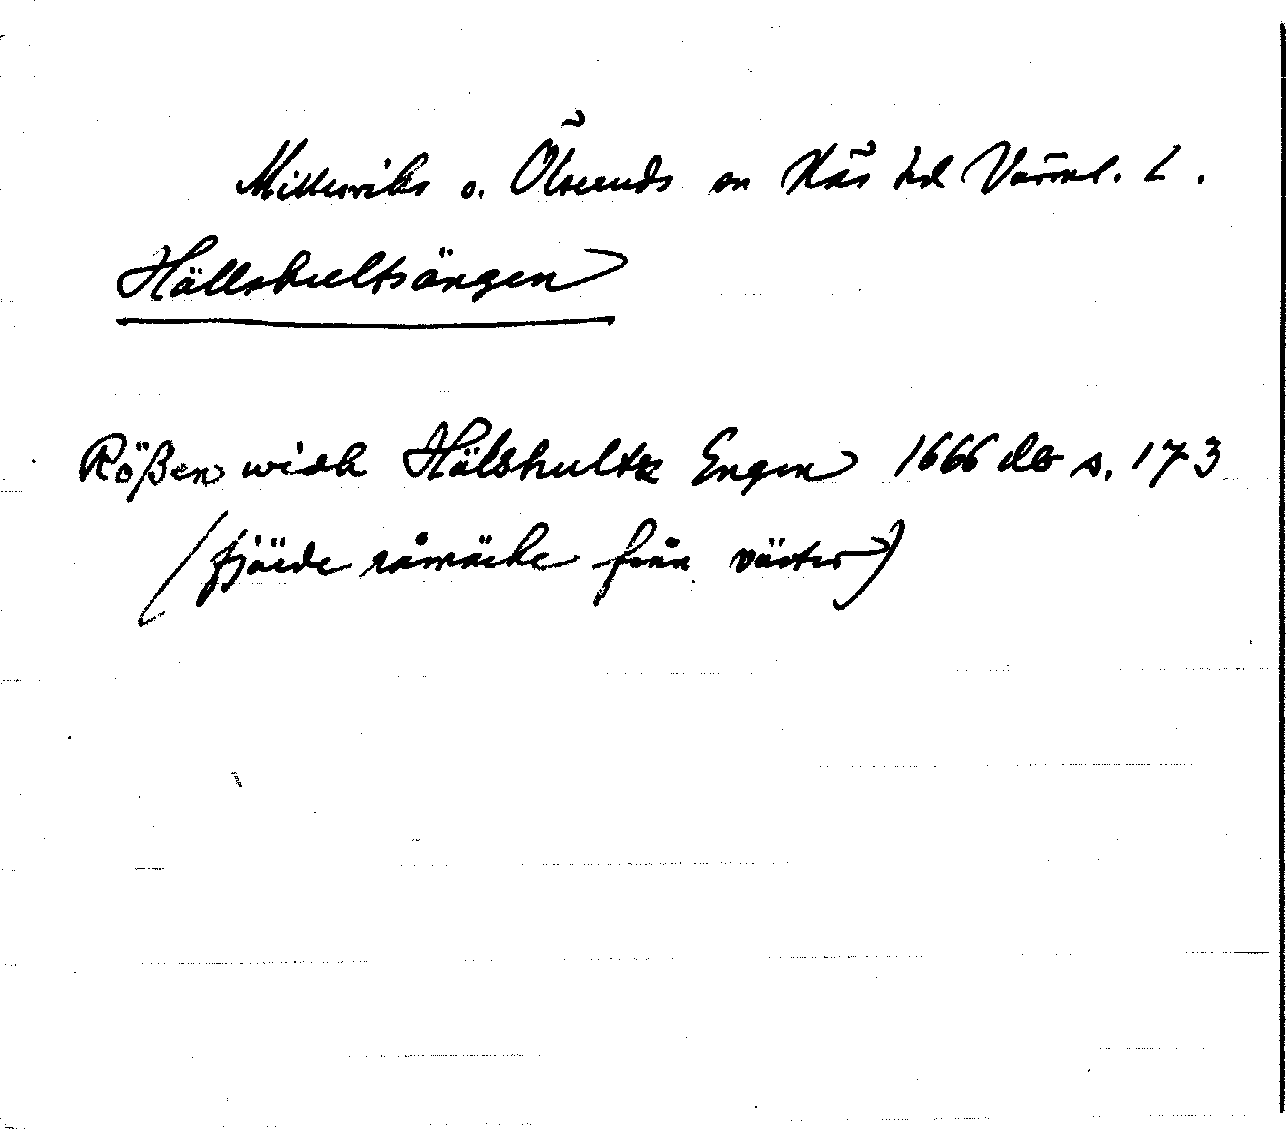 Millesviks o. Ölseruds sn Näs hd Värml. L.
Hällshultsängen
Rößen widh Hälshultz Engen 1666 db s. 173
(fjärde råmärke från väster)